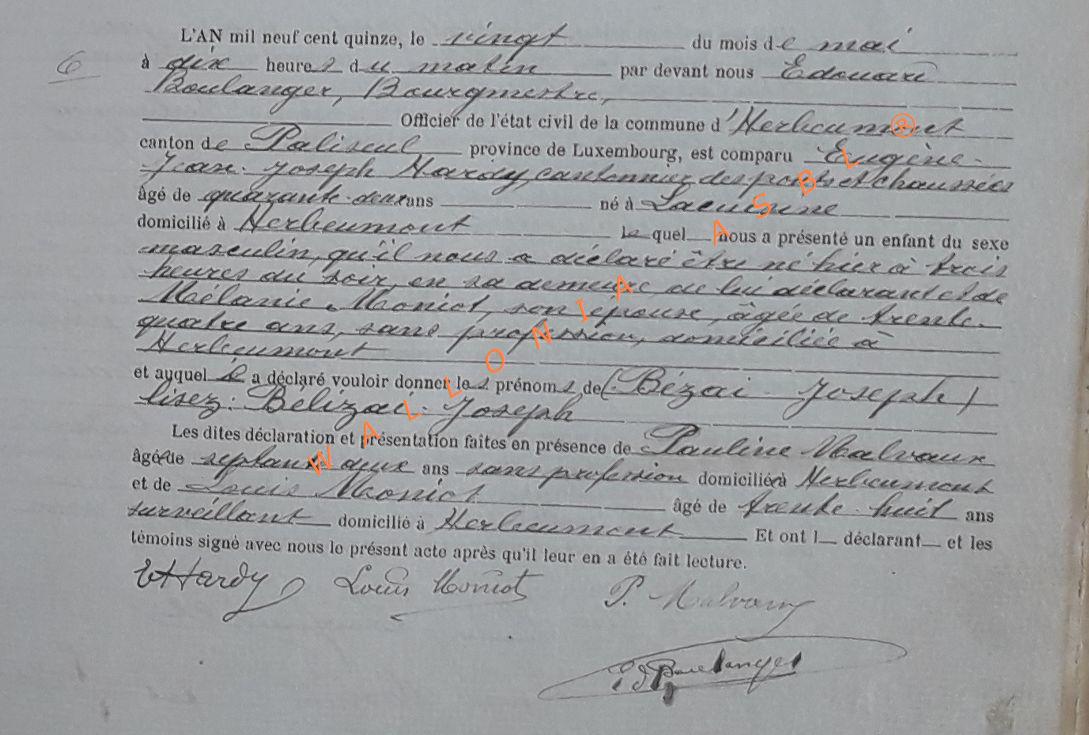 L'AN mil neuf cent quinze, le vingt du mois de mai
6
à dix heures du matin par devant nous Edouard
Boulanger, Bourgmestre,
Officier de l'état civil de la commune d'Herbeumont
canton de Paliseul province de Luxembourg, est comparu Eugène-
Jean-Joseph Hardy, cantonnier des ponts et chaussées
âgé de quarante-deux ans né à Lacuisine
domicilié à Herbeumont lequel nous a présenté un enfant du sexe
masculin, qu'il nous a déclaré être né hier à trois
heures du soir, en sa demeure, de lui déclarant et de
Mélanie Moniot, son épouse, âgée de trente-
quatre ans, sans profession, domiciliée à
Herbeumont
et auquel il a déclaré vouloir donner les prénoms de (Bézai Joseph)
lisez: Bélizai-Joseph
Les dites déclaration et présentation faites en présence de Pauline Malvaux
âgée de septante deux ans sans profession domiciliée à Herbeumont
et de Louis Moniot âgé de trente-huit ans
surveillant domicilié à Herbeumont Et ont l déclarant et les
témoins signé avec nous le présent acte après qu'il leur en a été fait lecture.
EHardy Louis Moniot P. Malvaux
Ed Boulanger
WALLONIA ASBL ®